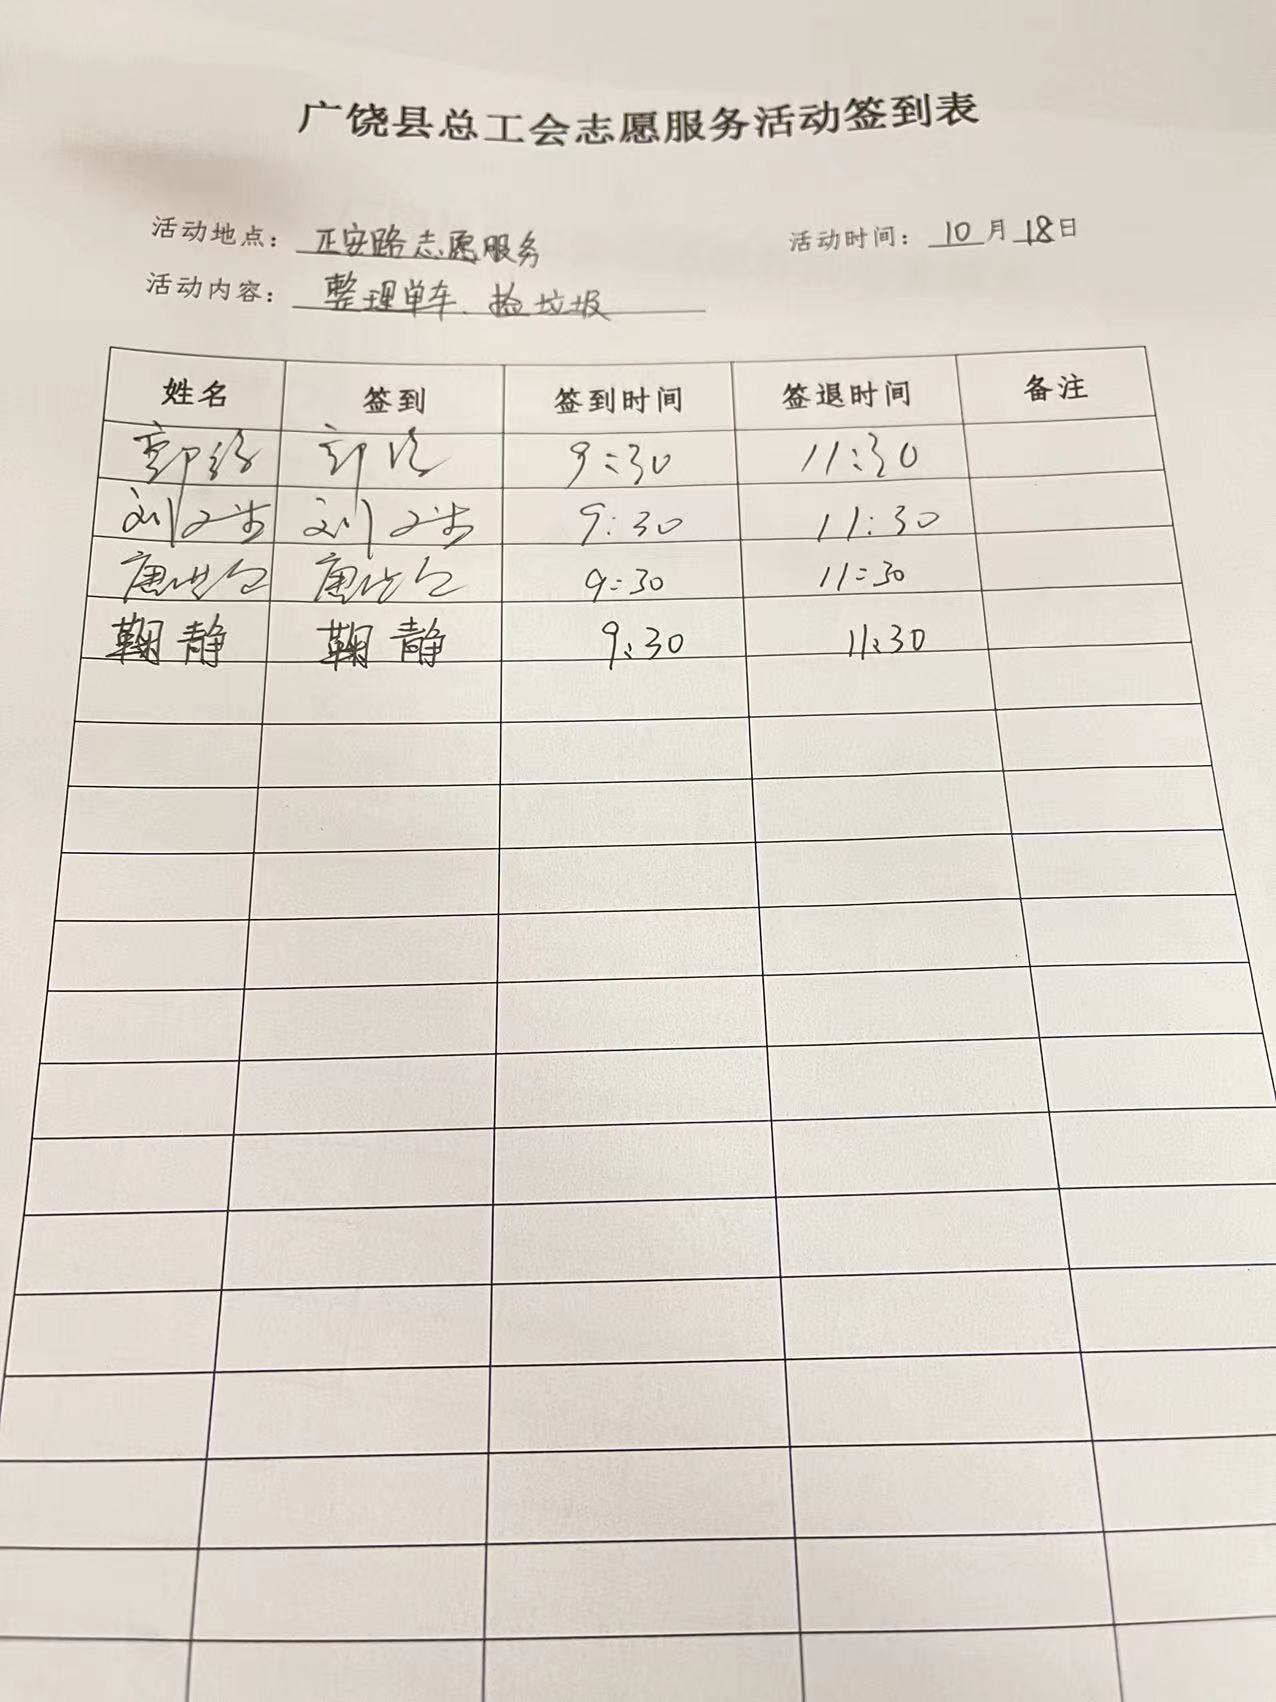 广饶县总工会志愿服务活动签到表
活动地点：正安路志愿服务 活动时间：10月18日
活动内容：整理单车、捡垃圾
姓名 签到 签到时间 签退时间 备注
郭 郭 9:30 11:30
刘 刘 9:30 11:30
唐 唐 9:30 11:30
鞠静 鞠静 9:30 11:30